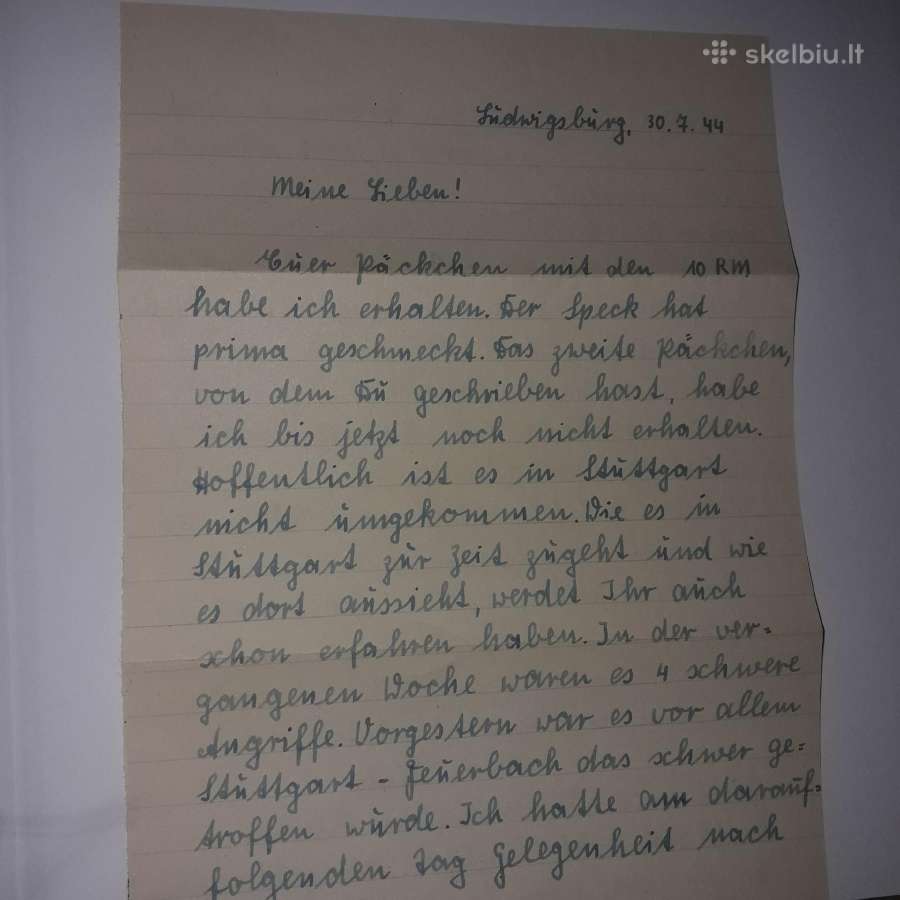 skelbiu.lt
Ludwigsburg, 30.7.44
Meine Lieben!
Euer Päckchen mit den 10 RM
habe ich erhalten. Der Speck hat
prima geschmeckt. Das zweite Päckchen,
von dem Du geschrieben hast, habe
ich bis jetzt noch nicht erhalten.
Hoffentlich ist es in Stuttgart
nicht umgekommen. Wie es in
Stuttgart zur Zeit zugeht und wie
es dort aussieht, werdet Ihr auch
schon erfahren haben. In der ver=
gangenen Woche waren es 4 schwere
Angriffe. Vorgestern war es vor allem
Stuttgart - Feuerbach das schwer ge=
troffen wurde. Ich hatte am darauf=
folgenden Tag Gelegenheit nach